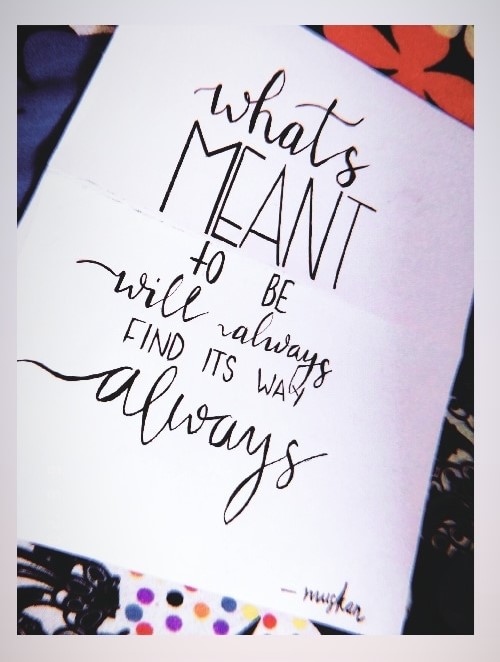 whats
MEANT
to BE
will always
FIND ITS WAY
always
- muskan